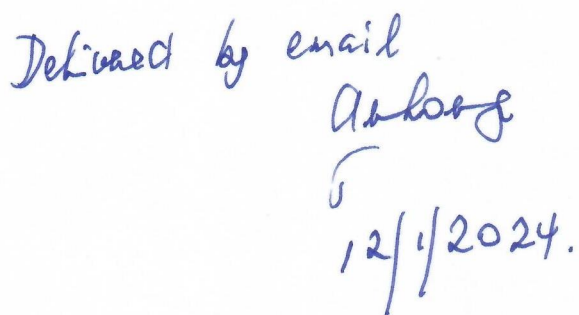 Delivered by email
12/1/2024.